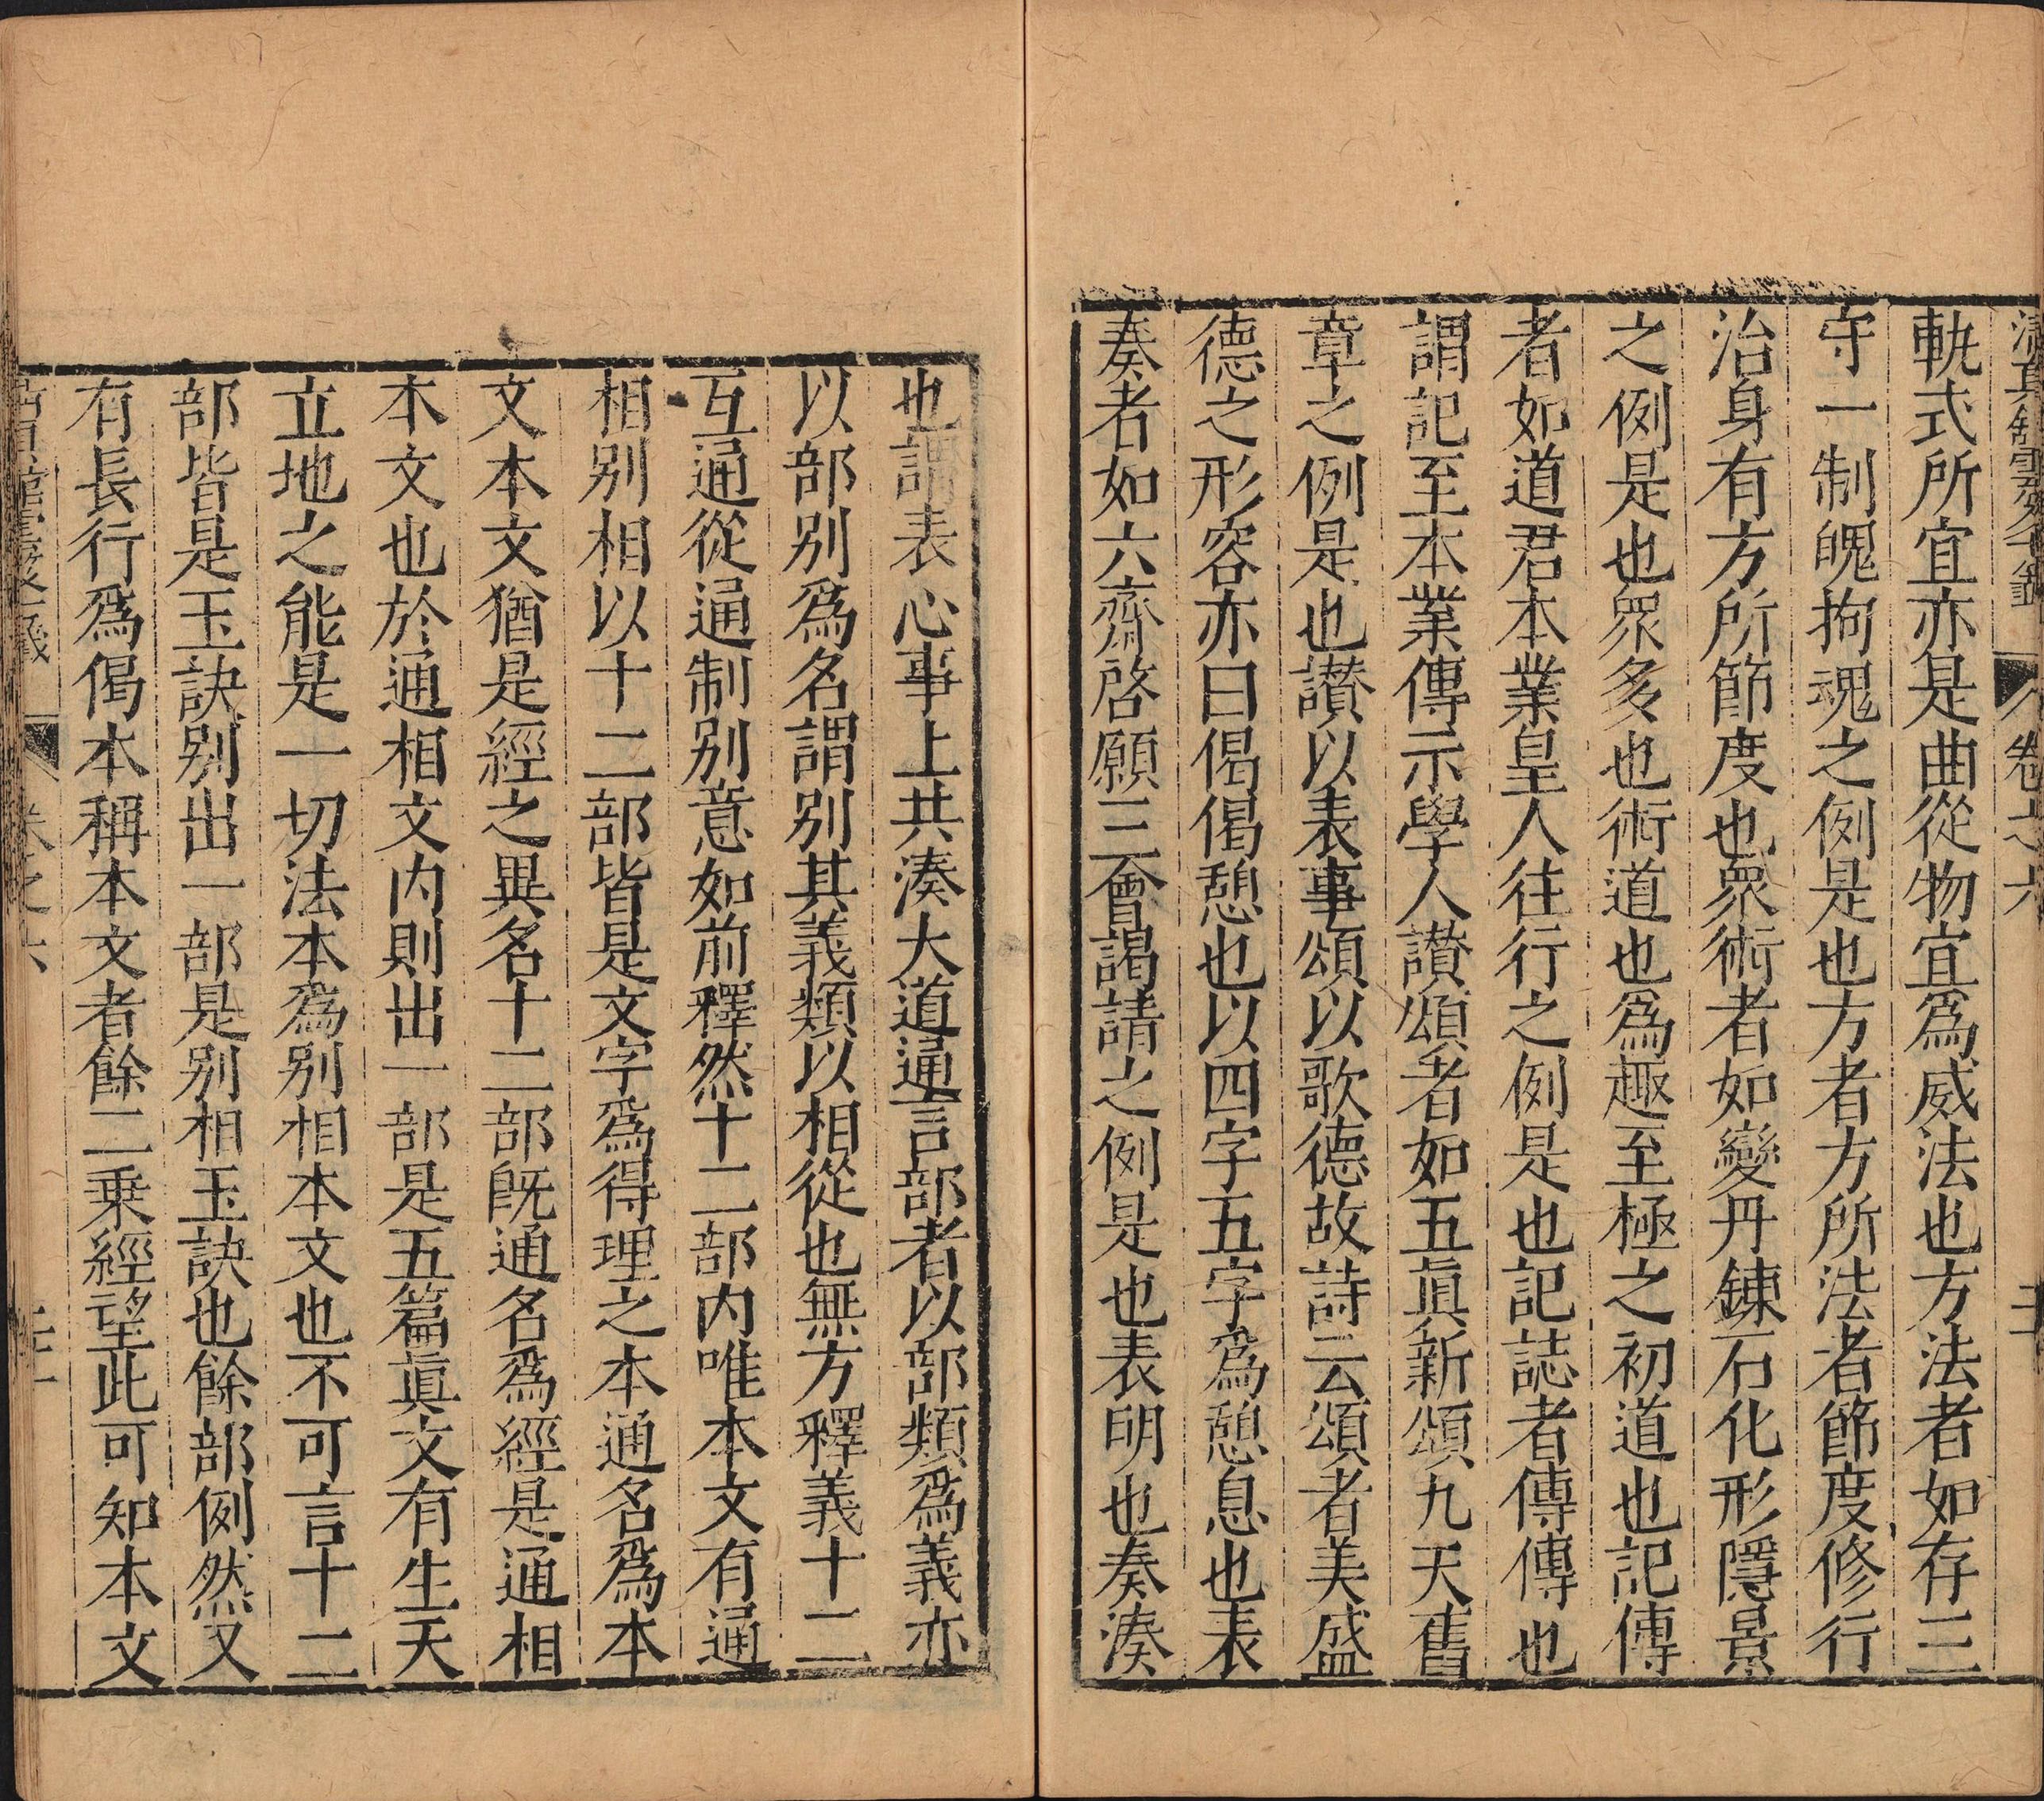 卷之六
軌式所宜亦是曲從物宜爲威法也方法者如存三
守一制魄拘魂之例是也方者方所法者節度修行
治身有方所節度也眾術者如變丹鍊石化形隱景
之例是也眾多也術道也爲趣至極之初道也記傳
者如道君本業皇人往行之例是也記誌者傳傳也
謂記至本業傳示學人讃頌者如五眞新頌九天舊
章之例是也讃以表事頌以歌德故詩云頌者美盛
德之形容亦曰偈偈憩也以四字五字爲憩息也表
奏者如六齋啓願三會謁請之例是也表明也奏湊
也謂表心事上共湊大道通言部者以部類爲義亦
以部别爲名謂别其義類以相從也無方釋義十二
互通從通制别意如前釋然十二部内唯本文有通
相别相以十二部皆是文字爲得理之本通名爲本
文本文猶是經之異名十二部旣通名爲經是通相
本文也於通相文内則出一部是五篇眞文有生天
立地之能是一切法本爲别相本文也不可言十二
部皆是玉訣别出一部是别相玉訣也餘部例然又
有長行爲偈本稱本文者餘二乗經望此可知本文